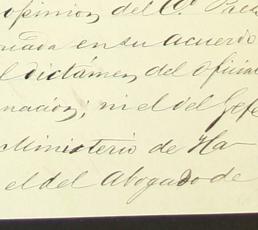 opinion del C. Pre
en su acuerdo
l dictámen del oficial
nacion; ni el del Gefe
Ministerio de Ha-
el del Abogado de